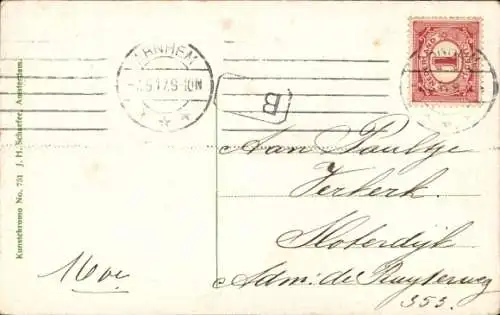 ARNHEM
B
NEDERLAND
1
Kunstchromo No. 731 J. H. Schaefer, Amsterdam.
Aan Paultje
Verkerk.
Sloterdijk
Adm: de Ruyterweg
353.